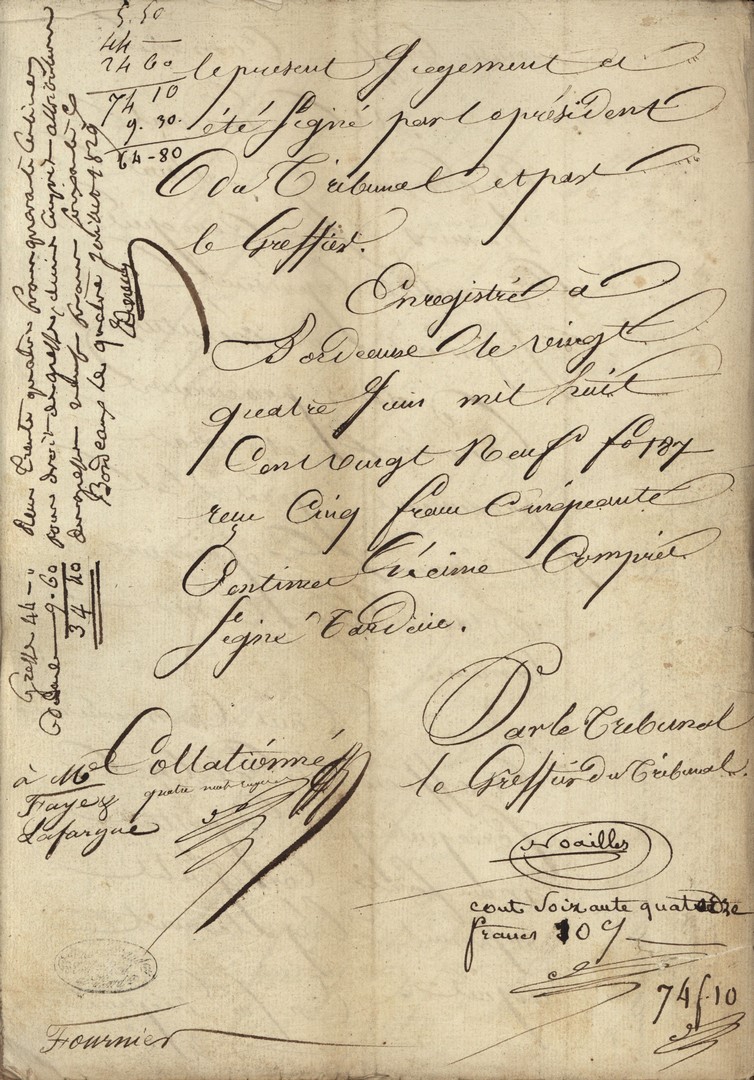 5.50
44 —
24 60
74 10
9.30.
64-80
le present Jugement a
été signé par le président
du Tribunal et par
le Greffier.
Enregistré à
Bordeaux le vingt
quatre Juin mil huit
Cent vingt Neuf fo 187
reçu Cinq francs Cinquante
Centimes Décime Compris
signé Tardieu.
Reçu trente quatre francs quarante centimes
pour droit de greffe
Bordeaux le quatre Juillet 1829
Greffe 44 - "
9.60
34 40
Par le Tribunal
le Greffier du Tribunal.
Collationné
quatre
à Me
Faye &
Lafargue
Noailles
cout soixante quatorze
francs 10 C
74 f. 10
Fournier